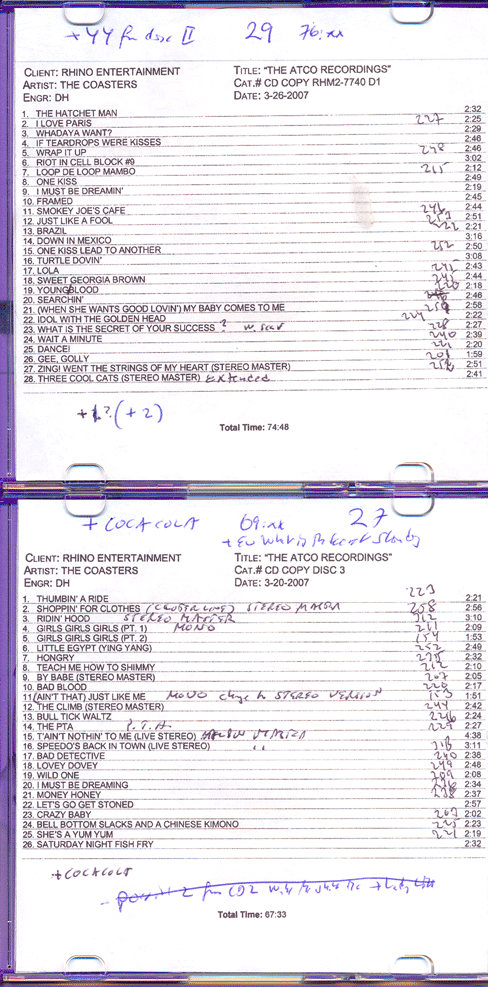 + YY fm disc II 29 76:
CLIENT: RHINO ENTERTAINMENT TITLE: "THE ATCO RECORDINGS"
ARTIST: THE COASTERS CAT.# CD COPY RHM2-7740 D1
ENGR: DH DATE: 3-26-2007
1. THE HATCHET MAN 2:32
2. I LOVE PARIS 227 2:25
3. WHADAYA WANT? 2:29
4. IF TEARDROPS WERE KISSES 2:46
5. WRAP IT UP 248 2:46
6. RIOT IN CELL BLOCK #9 3:02
7. LOOP DE LOOP MAMBO 215 2:12
8. ONE KISS 2:49
9. I MUST BE DREAMIN' 2:19
10. FRAMED 2:45
11. SMOKEY JOE'S CAFE 246 2:44
12. JUST LIKE A FOOL 2:51
13. BRAZIL 222 2:21
14. DOWN IN MEXICO 3:16
15. ONE KISS LEAD TO ANOTHER 252 2:50
16. TURTLE DOVIN' 3:08
17. LOLA 245 2:43
18. SWEET GEORGIA BROWN 245 2:44
19. YOUNGBLOOD 220 2:18
20. SEARCHIN' 2:46
21. (WHEN SHE WANTS GOOD LOVIN') MY BABY COMES TO ME 2:58
22. IDOL WITH THE GOLDEN HEAD 224 2:22
23. WHAT IS THE SECRET OF YOUR SUCCESS ? 228 2:27
24. WAIT A MINUTE 240 2:39
25. DANCE! 221 2:20
26. GEE, GOLLY 201 1:59
27. ZING! WENT THE STRINGS OF MY HEART (STEREO MASTER) 252 2:51
28. THREE COOL CATS (STEREO MASTER) Extended 2:41
+1? (+2)
Total Time: 74:48
+ COCACOLA 69: 27
CLIENT: RHINO ENTERTAINMENT TITLE: "THE ATCO RECORDINGS"
ARTIST: THE COASTERS CAT.# CD COPY DISC 3
ENGR: DH DATE: 3-20-2007
1. THUMBIN' A RIDE 223 2:21
2. SHOPPIN' FOR CLOTHES (CLOSER LINE) STEREO MASTER 258 2:56
3. RIDIN' HOOD STEREO MASTER 312 3:10
4. GIRLS GIRLS GIRLS (PT. 1) MONO 211 2:09
5. GIRLS GIRLS GIRLS (PT. 2) 154 1:53
6. LITTLE EGYPT (YING YANG) 252 2:49
7. HONGRY 2:32
8. TEACH ME HOW TO SHIMMY 212 2:10
9. BY BABE (STEREO MASTER) 207 2:05
10. BAD BLOOD 220 2:17
11. (AIN'T THAT) JUST LIKE ME MONO change to STEREO VERSION 153 1:51
12. THE CLIMB (STEREO MASTER) 244 2:42
13. BULL TICK WALTZ 226 2:24
14. THE PTA P.T.A. 229 2:27
15. T'AIN'T NOTHIN' TO ME (LIVE STEREO) 4:38
16. SPEEDO'S BACK IN TOWN (LIVE STEREO) " 313 3:11
17. BAD DETECTIVE 240 2:38
18. LOVEY DOVEY 249 2:48
19. WILD ONE 209 2:08
20. I MUST BE DREAMING 236 2:34
21. MONEY HONEY 238 2:37
22. LET'S GO GET STONED 2:57
23. CRAZY BABY 203 2:02
24. BELL BOTTOM SLACKS AND A CHINESE KIMONO 225 2:23
25. SHE'S A YUM YUM 221 2:19
26. SATURDAY NIGHT FISH FRY 2:32
+COCACOLA
Total Time: 67:33